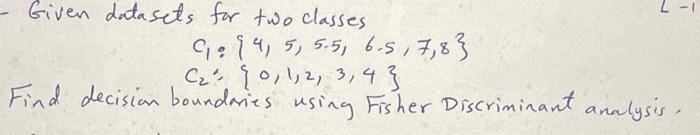 - Given datasets for two classes
C₁: {4, 5, 5.5, 6.5, 7, 8}
C₂: {0, 1, 2, 3, 4}
Find decision boundaries using Fisher Discriminant analysis.